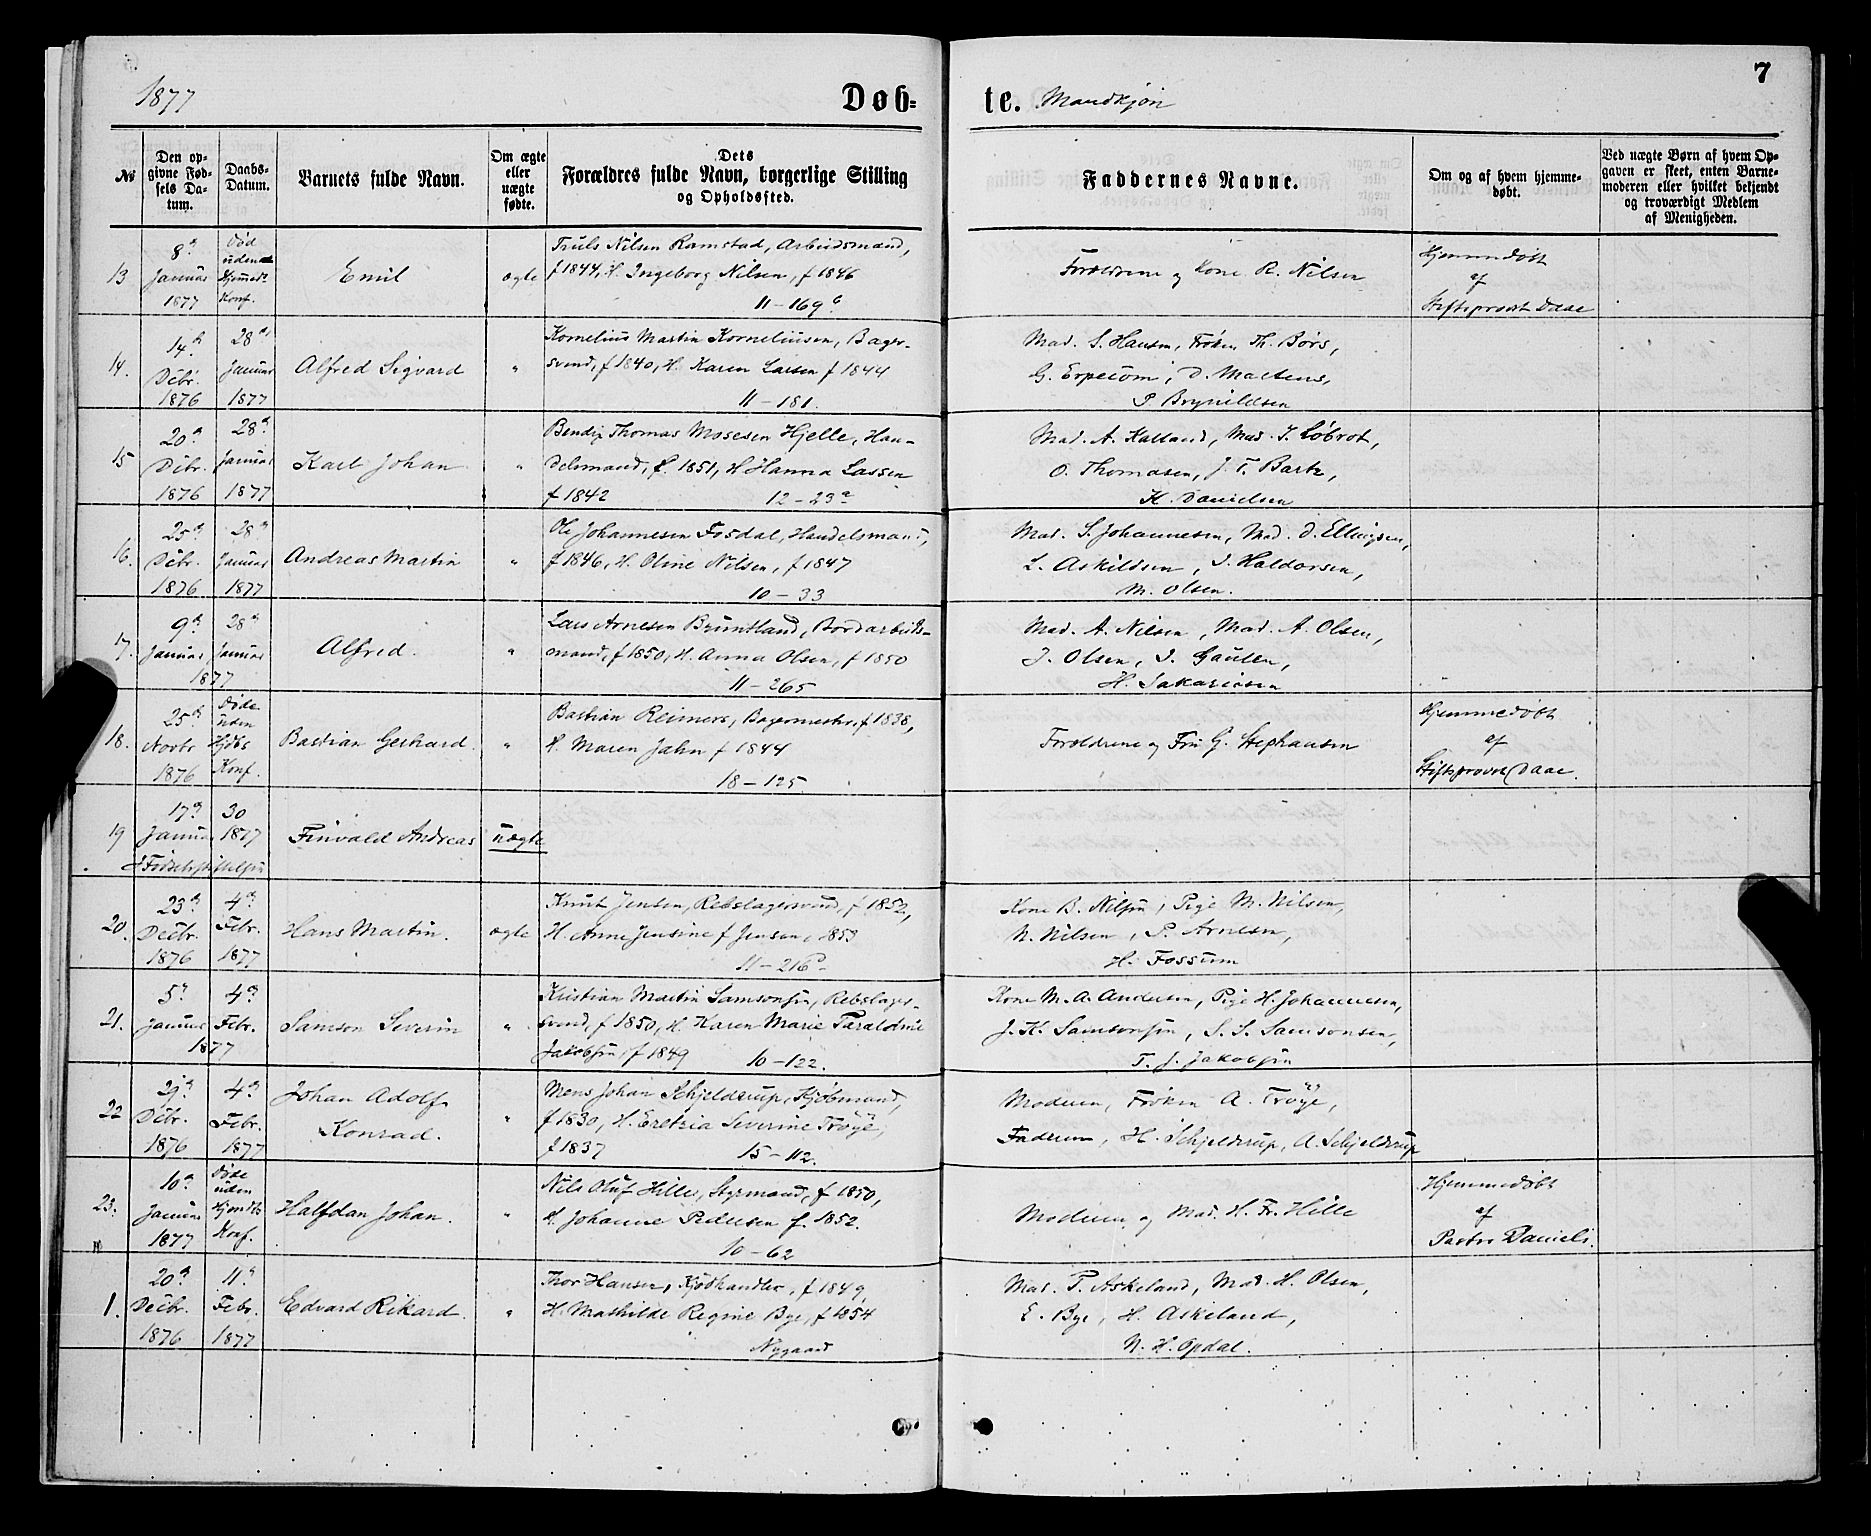 1877
Døb=
te. Mandkjøn
7
No
Den op-
givne Fød-
sels Da-
tum.
Daabs-
Datum.
Barnets fulde Navn.
Om ægte
eller
uægte
fødte.
Dets
Forældres fulde Navn, borgerlige Stilling
og Opholdssted.
Faddernes Navne.
Om og af hvem hjemme-
døbt.
Ved uægte Børn af hvem Op-
gaven er skeet, enten Barne-
moderen eller hvilket bekjendt
og troværdigt Medlem
af Menigheden.
13
8de
Januar
1877
Død
uden
Konf.
Emil
ægte
Truls Nilsen Ramstad, Arbeidsmand,
f 1844, H. Ingeborg Nilsen, f 1846
11-169b
Forældrene og Kone R. Nilsen
Hjemmedøbt
af
Stiftsprovst Daae
14.
14de
Decbr.
1876
28de
Januar
1877
Alfred Sigvard
"
Kornelius Martin Korneliusen, Bager-
svend, f 1840, H. Karen Larsen f 1844
11-181.
Mad. S. Hansen, Frøken Th. Børs,
G. Erpecom, D. Martens,
P. Brynildsen
15
20de
Decbr.
1876
28de
Januar
1877
Karl Johan
"
Bendix Thomas Mosesen Hjelle, Han-
delsmand, f. 1851, H Hanna Lassen
f 1842
12-23a
Mad. A. Kalland, Mad. I. Løbrot,
O. Thomasen, J. T. Bartz,
K. Danielsen
16.
25de
Decbr.
1876
28de
Januar
1877
Andreas Martin
"
Ole Johannesen Fosdal, Handelsmand,
f 1846, H. Oline Nilsen, f 1847
10-33
Mad. S. Johannesen, Mad. D. Ellingsen,
L. Askildsen, I. Haldorsen,
M. Olsen.
17.
9de
Januar
28de
Januar
1877
Alfred.
"
Lars Arnesen Bruntland, Bordarbeids-
mand, f 1850, H. Anna Olsen, f 1850
11-265
Mad. A. Nilsen, Mad. A. Olsen,
J. Olsen, I. Gausen,
H. Sakariasen
18.
25de
Novbr
1876
Døde
uden
Hjdbs
Konf.
Bastian Gerhard.
"
Bastian Reimers, Bagermester, f 1838,
H. Maren Jahn f 1844
18-125.
Forældrene og Fru G. Stephansen
Hjemmedøbt
af
Stiftsprovst Daae.
19
17de
Januar
30
1877
Finvald Andreas
uægte
20.
23de
Decbr.
1876
4de
Febr.
1877
Hans Martin.
ægte
Knut Jensen, Rebslagersvend, f 1852,
H. Anne Jensine f Jensen, 1853
Kone B. Nilsen, Pige M. Nilsen,
N. Nilsen, P. Arnesen,
H. Fossum
21.
5te
Januar
4de
Febr.
1877
Samson Severin
"
Kristian Martin Samsonsen, Rebslager-
svend, f 1850, H. Karen Marie Taraldine
Jakobsen, f 1849 10-122.
Kone M. A. Andersen, Pige H. Johannesen,
J. K. Samsonsen, S. S. Samsonsen,
T. J. Jakobsen
22
29de
Decbr.
1876
4de
Febr.
1877
Johan Adolf
Konrad.
"
Mens Johan Schjelderup, Kjøbmand,
f 1830, H. Eretzia Severine Trøye,
f 1837
15-112.
Moderen, Frøken A. Trøye,
Faderen, H. Schjelderup, A. Schjelderup
23.
10de
Januar
1877
Døde
uden
Konf.
Halfdan Johan.
"
Nils Oluf Hille, Styrmand, f 1850,
H. Johanne Pedersen f. 1852.
10-62
Moderen og Mad. H. Fr. Hille
Hjemmedøbt
af
Pastor Daniels.
1.
20de
Decbr.
1876
11te
Febr.
1877
Edvard Rikard.
"
Thor Hansen, Kjødhandler, f 1849,
H. Mathilde Regine Bye, f 1854
Nygaard
Mad. P. Askeland, Mad. H. Olsen,
E. Bye, H. Askeland,
N. H. Opdal.